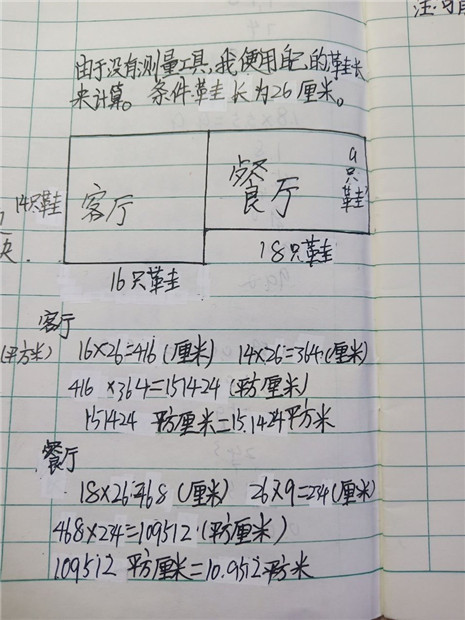 注:可
由于没有测量工具,我使用自己的鞋长
来计算。条件:鞋长为26厘米。
14只鞋
客厅
餐厅
9只鞋
16只鞋
18只鞋
客厅
(平方米)
16×26=416(厘米) 14×26=364(厘米)
416×364=151424(平方厘米)
151424平方厘米=15.1424平方米
餐厅
18×26=468(厘米) 26×9=234(厘米)
468×234=109512(平方厘米)
109512平方厘米=10.9512平方米